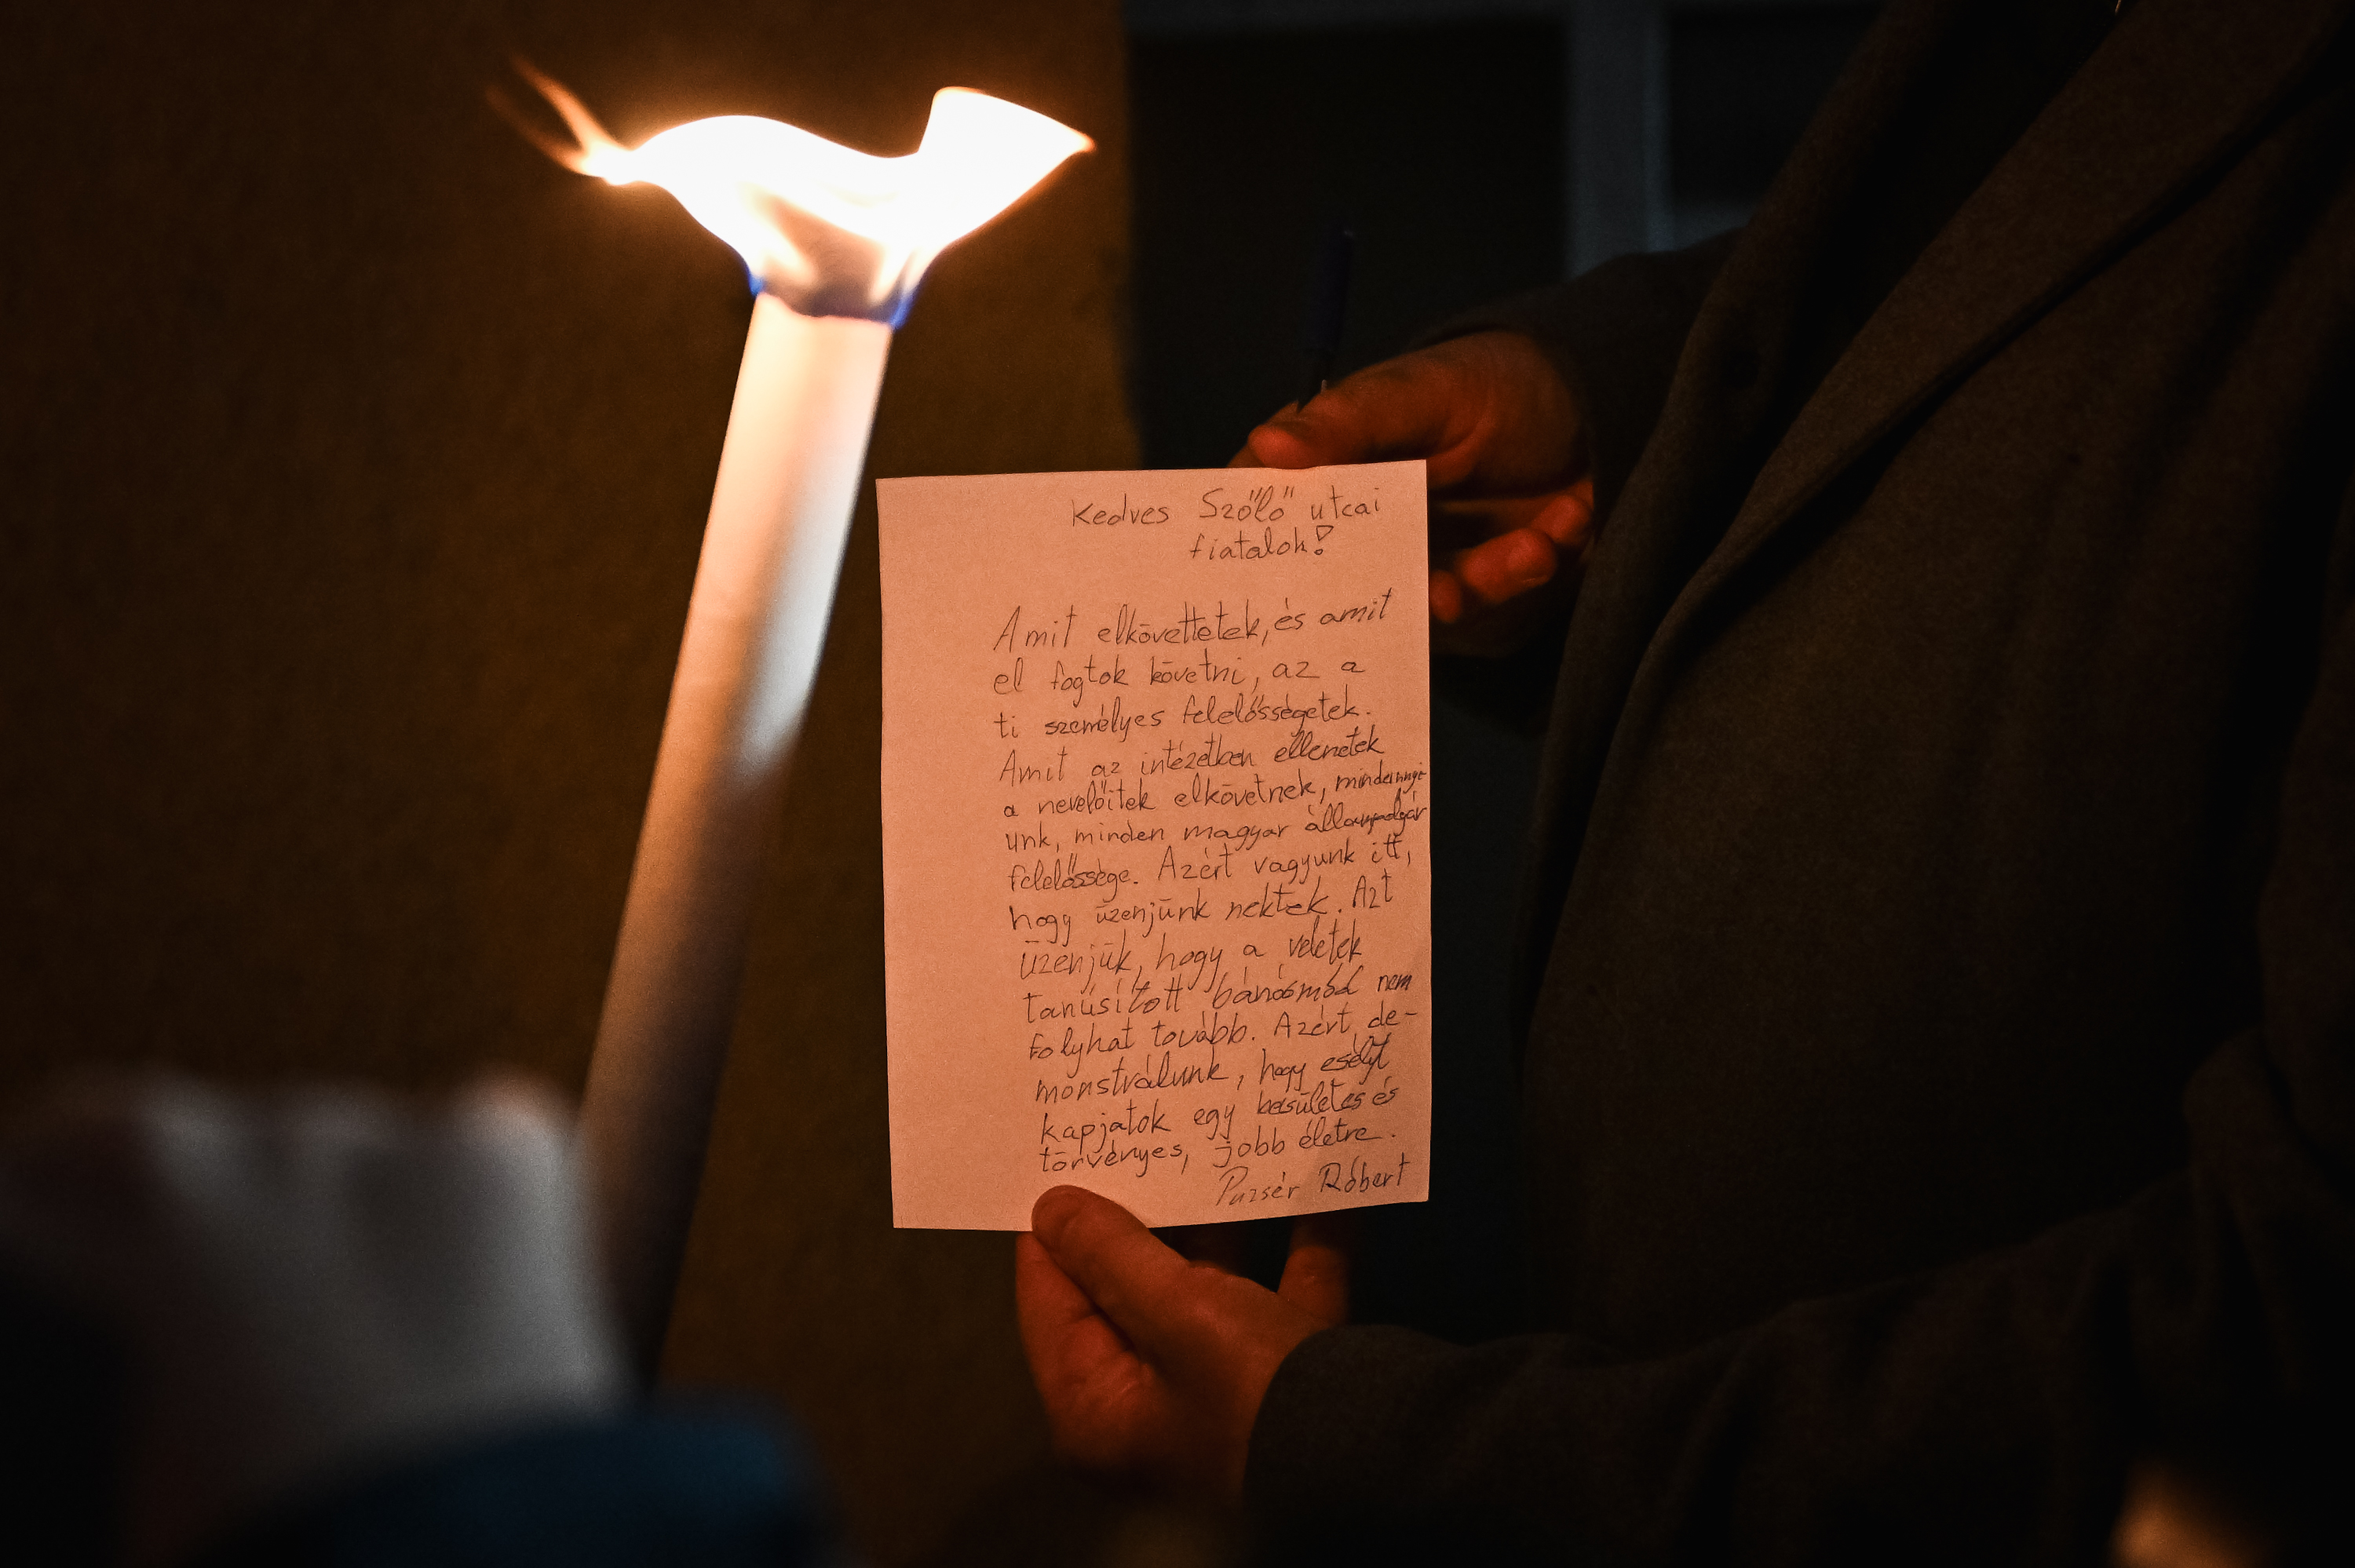 Kedves Szőlő utcai
fiatalok!
Amit elkövettetek, és amit
el fogtok követni, az a
ti személyes felelősségetek.
Amit az intézetben ellenetek
a nevelőitek elkövetnek, mindannyi-
unk, minden magyar állampolgár
felelőssége. Azért vagyunk itt,
hogy üzenjünk nektek. Azt
üzenjük, hogy a veletek
tanúsított bánásmód nem
folyhat tovább. Azért de-
monstrálunk, hogy esélyt
kapjatok egy becsületes és
törvényes, jobb életre.
Puzsér Róbert